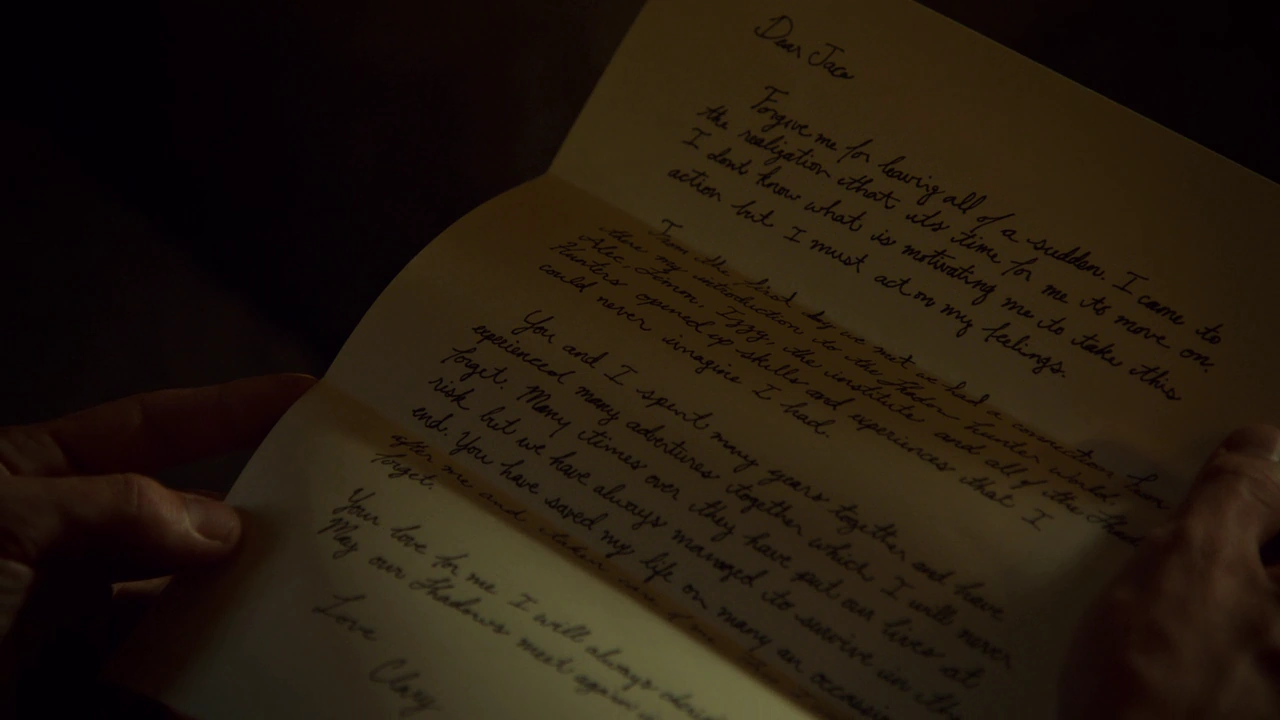 Dear Jace
Forgive me for leaving all of a sudden. I came to
the realization that its time for me to move on.
I dont know what is motivating me to take this
action but I must act on my feelings.
From the first day we met we had a connection. From
there my introduction to the Shadow hunter world.
Alec, Simon, Izzy, the institute and all of the Shadow
Hunters opened up skills and experiences that I
could never imagine I had.
You and I spent many years together and have
experienced many adventures together which I will never
forget. Many times over they have put our lives at
risk but we have always managed to survive in the
end. You have saved my life on many an occasion
after me and taken care
forget.
Your love for me I will always
May our Shadows meet again
Love
Clary